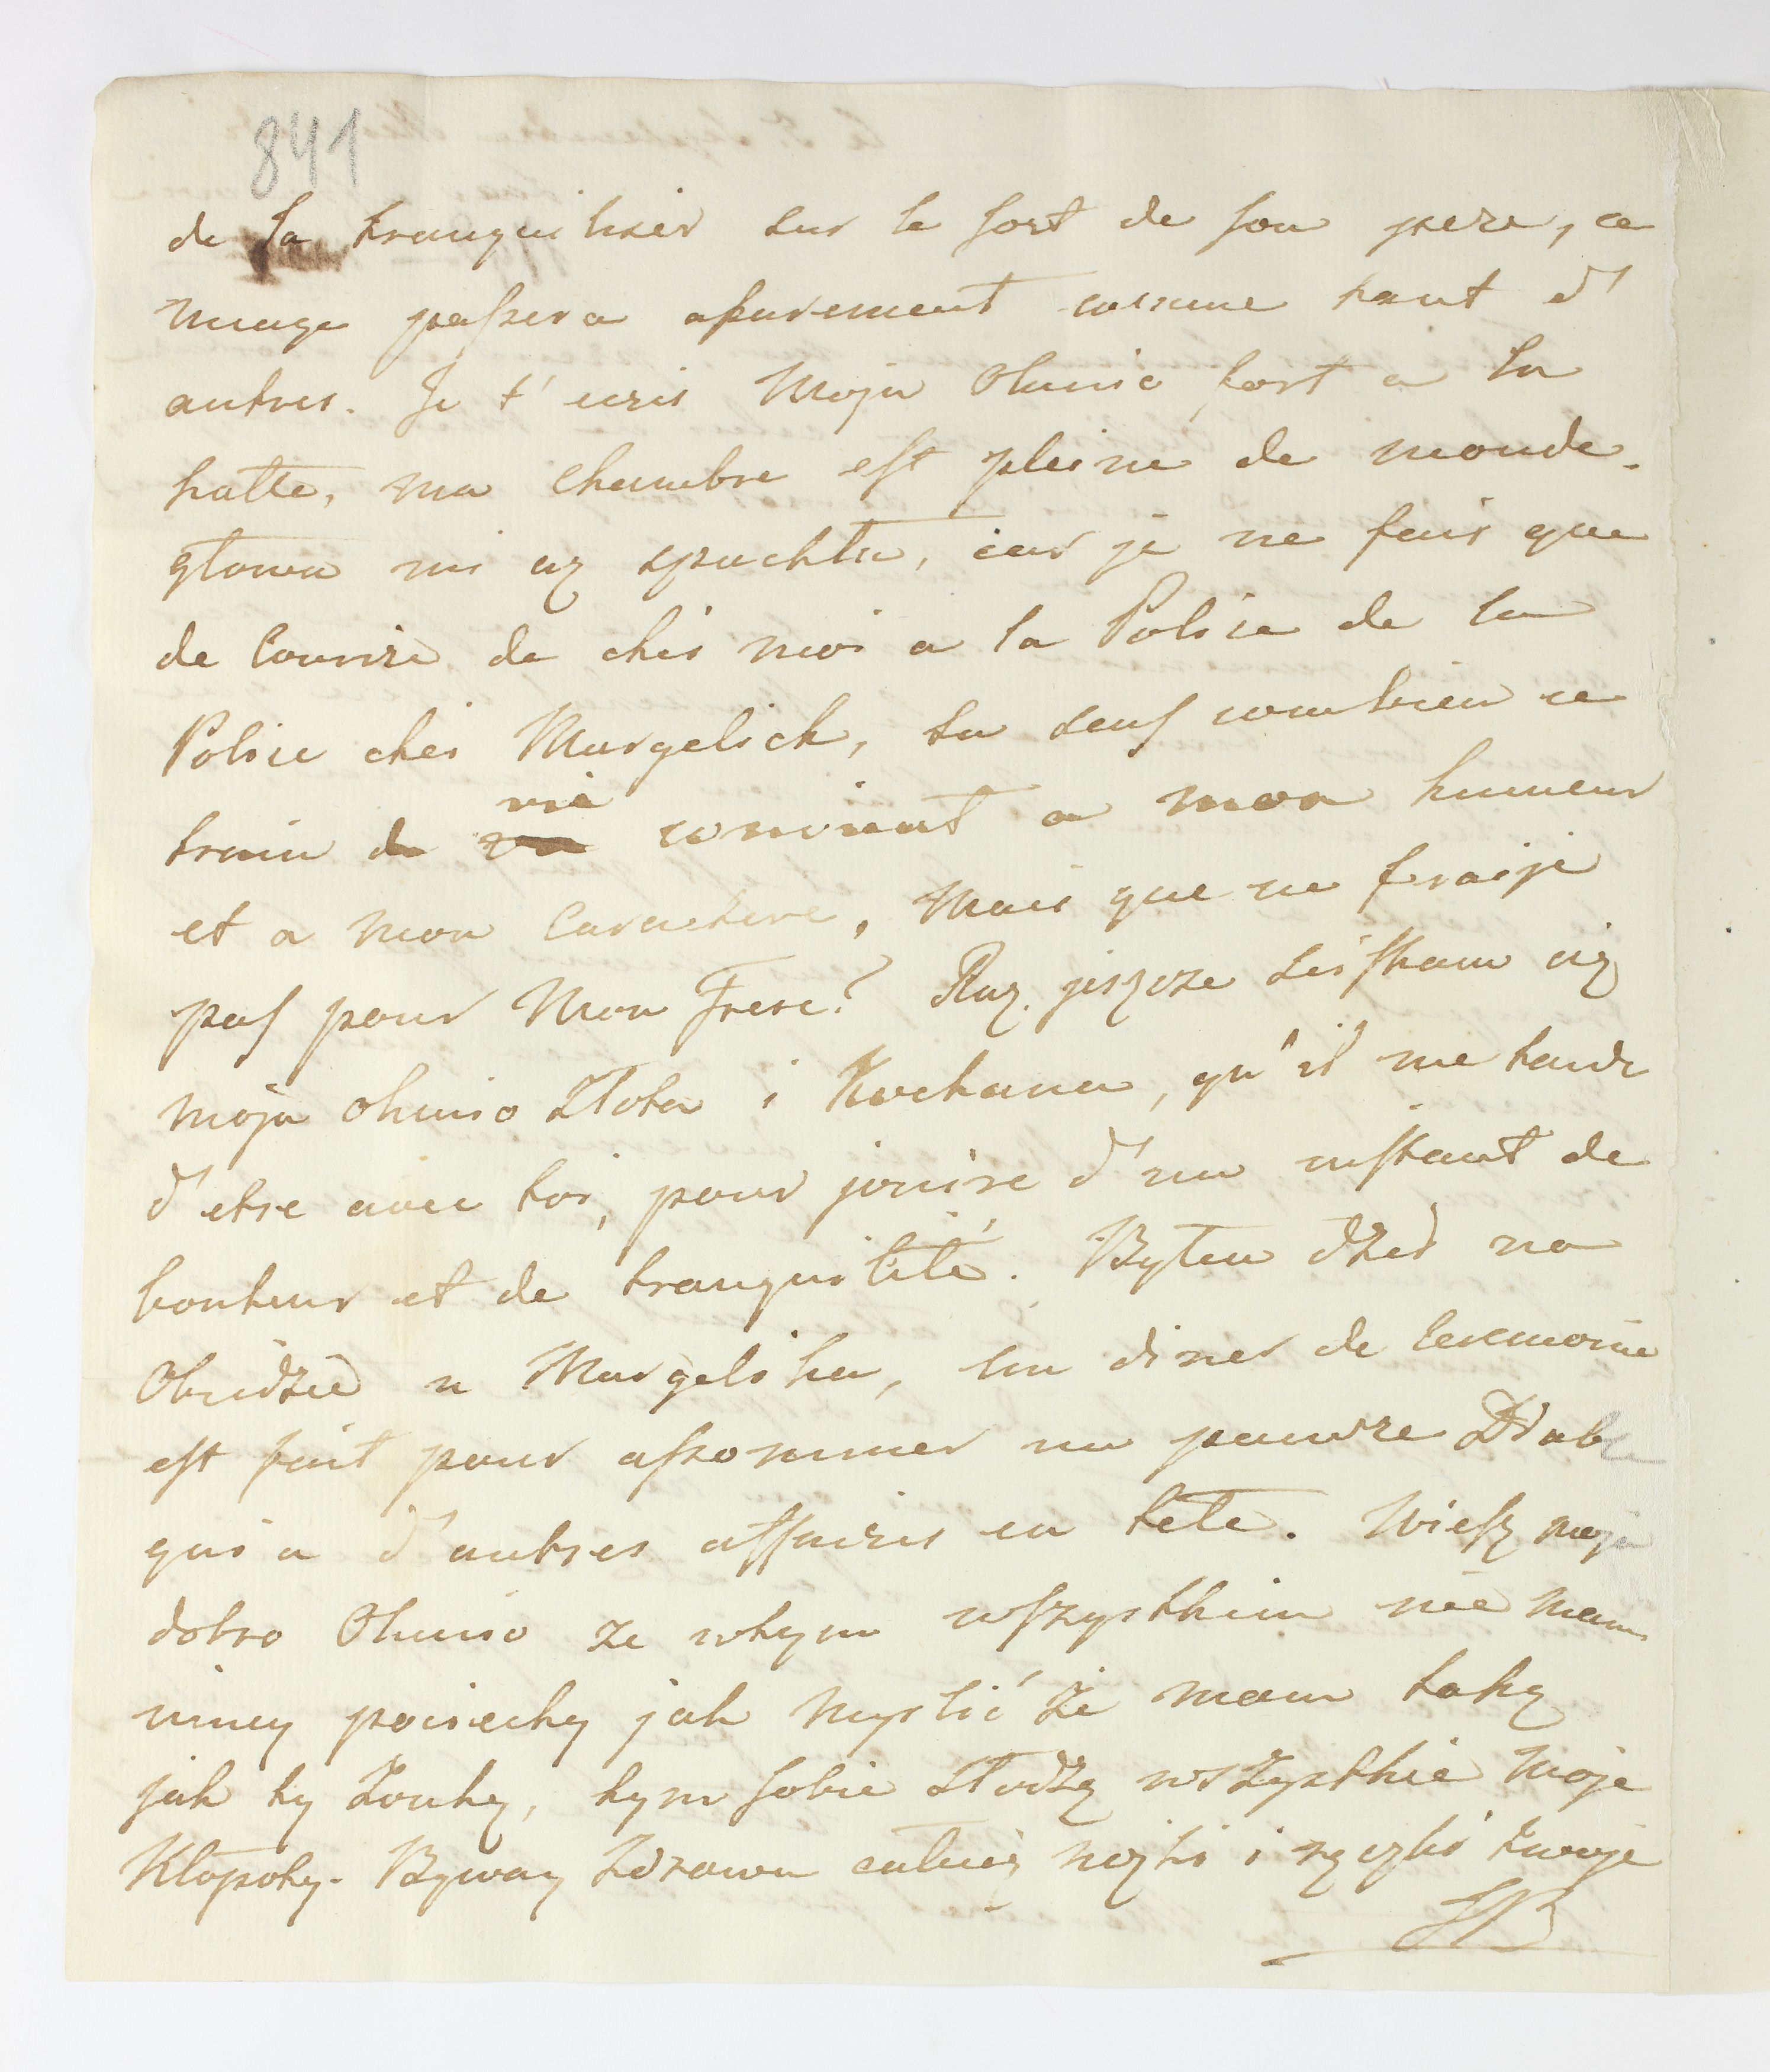 841
de la tranquiliser sur le sort de son pere, ce
nuage passera assurement comme tant d'
autres. Je t'ecris Moja Olunio fort a la
hatte, ma chambre est pleine de monde.
głowa mi aż spuchła, car je ne fais que
de Courire de chés moi a la Police de la
Police chés Margelick, tu sens combien ce
train de vie convient a mon humeur
et a mon Caractere, Mais que ne feraije
pas pour Mon Frere? Raz jeszcze sciskam cię
moja Olunio Złota i Kochana, qu'il me tarde
d'etre avec toi, pour jouire d'un instant de
bonheur et de tranquilité. Byłem dziś na
Obiedzie u Margelika, un diner de Ceremonie
est fait pour assommer un pauvre Diable
qui a d'autres affaires en tete. Wiesz moja
dobro Olunio ze wtym wszystkim nie mam
inney pociechy jak Myslić że mam taką
jak ty Zonkę, tym sobie Słodzę wszystkie moje
Kłopoty. Byway Zdrowa całuię nożki i rączki twoje